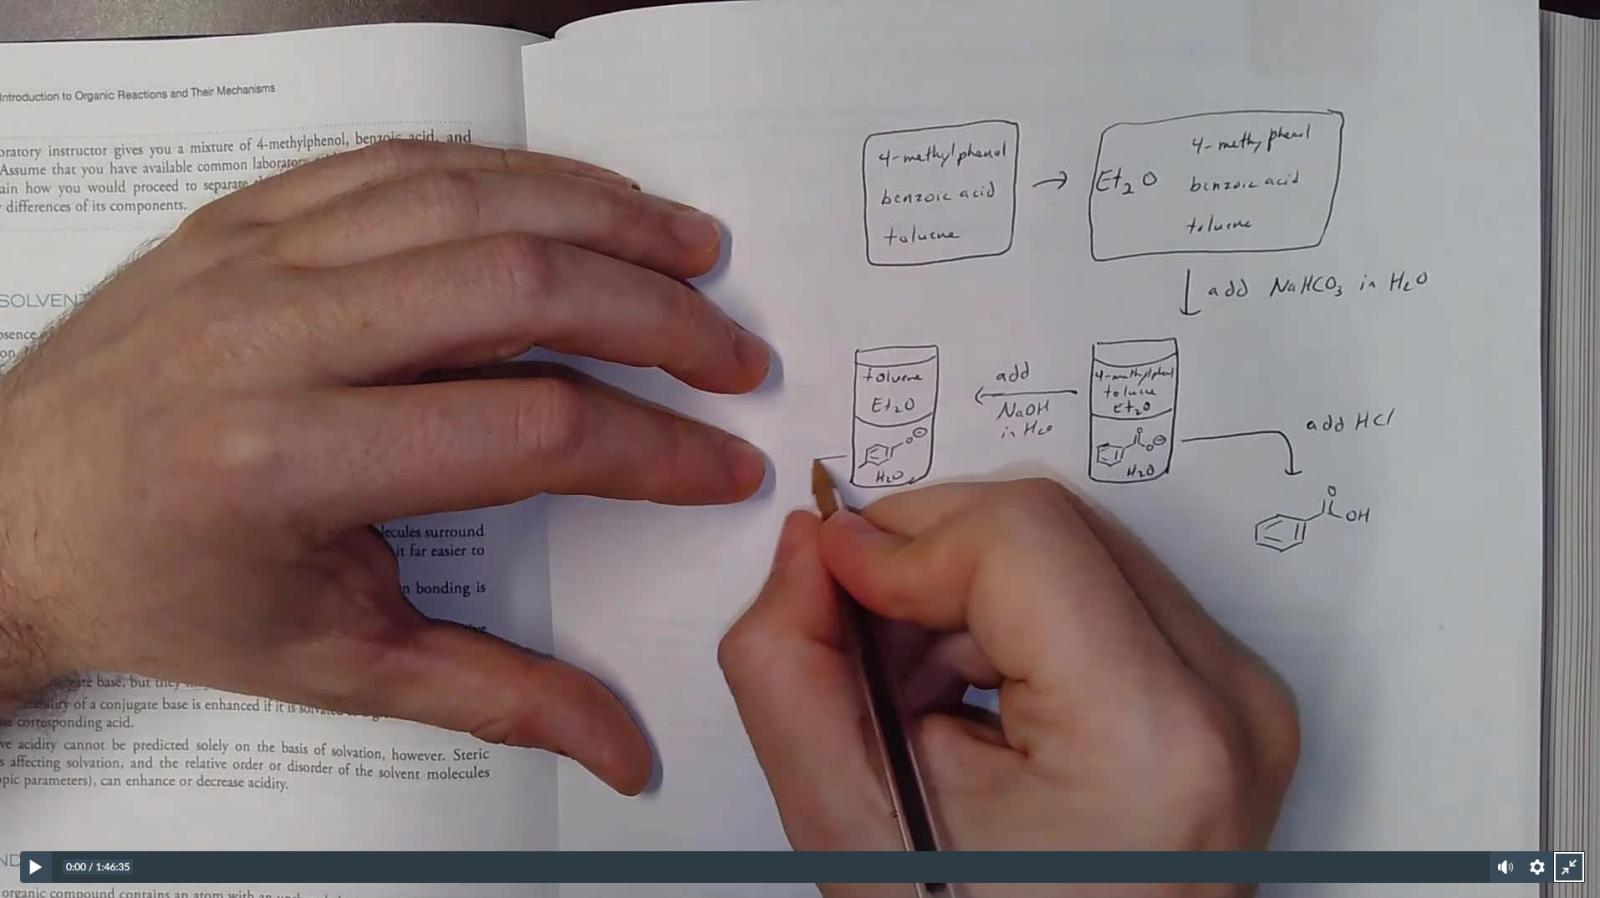 Introduction to Organic Reactions and Their Mechanisms
oratory instructor gives you a mixture of 4-methylphenol, benzoic acid, and
Assume that you have available common laborator
ain how you would proceed to separate
differences of its components.
SOLVENT
osence
on,
lecules surround
it far easier to
n bonding is
gate base, but they
of a conjugate base is enhanced if it is
corresponding acid.
ve acidity cannot be predicted solely on the basis of solvation, however. Steric
s affecting solvation, and the relative order or disorder of the solvent molecules
opic parameters), can enhance or decrease acidity.
ND
organic compound contains an atom with an
4-methylphenol
benzoic acid
toluene
Et2O
4-methyphenol
benzoic acid
toluene
add NaHCO3 in H2O
4-methylphenol
toluene
Et2O
O
O⊖
H2O
add HCl
O
OH
add
NaOH
in H2O
toluene
Et2O
O⊖
H2O
0:00 / 1:46:35